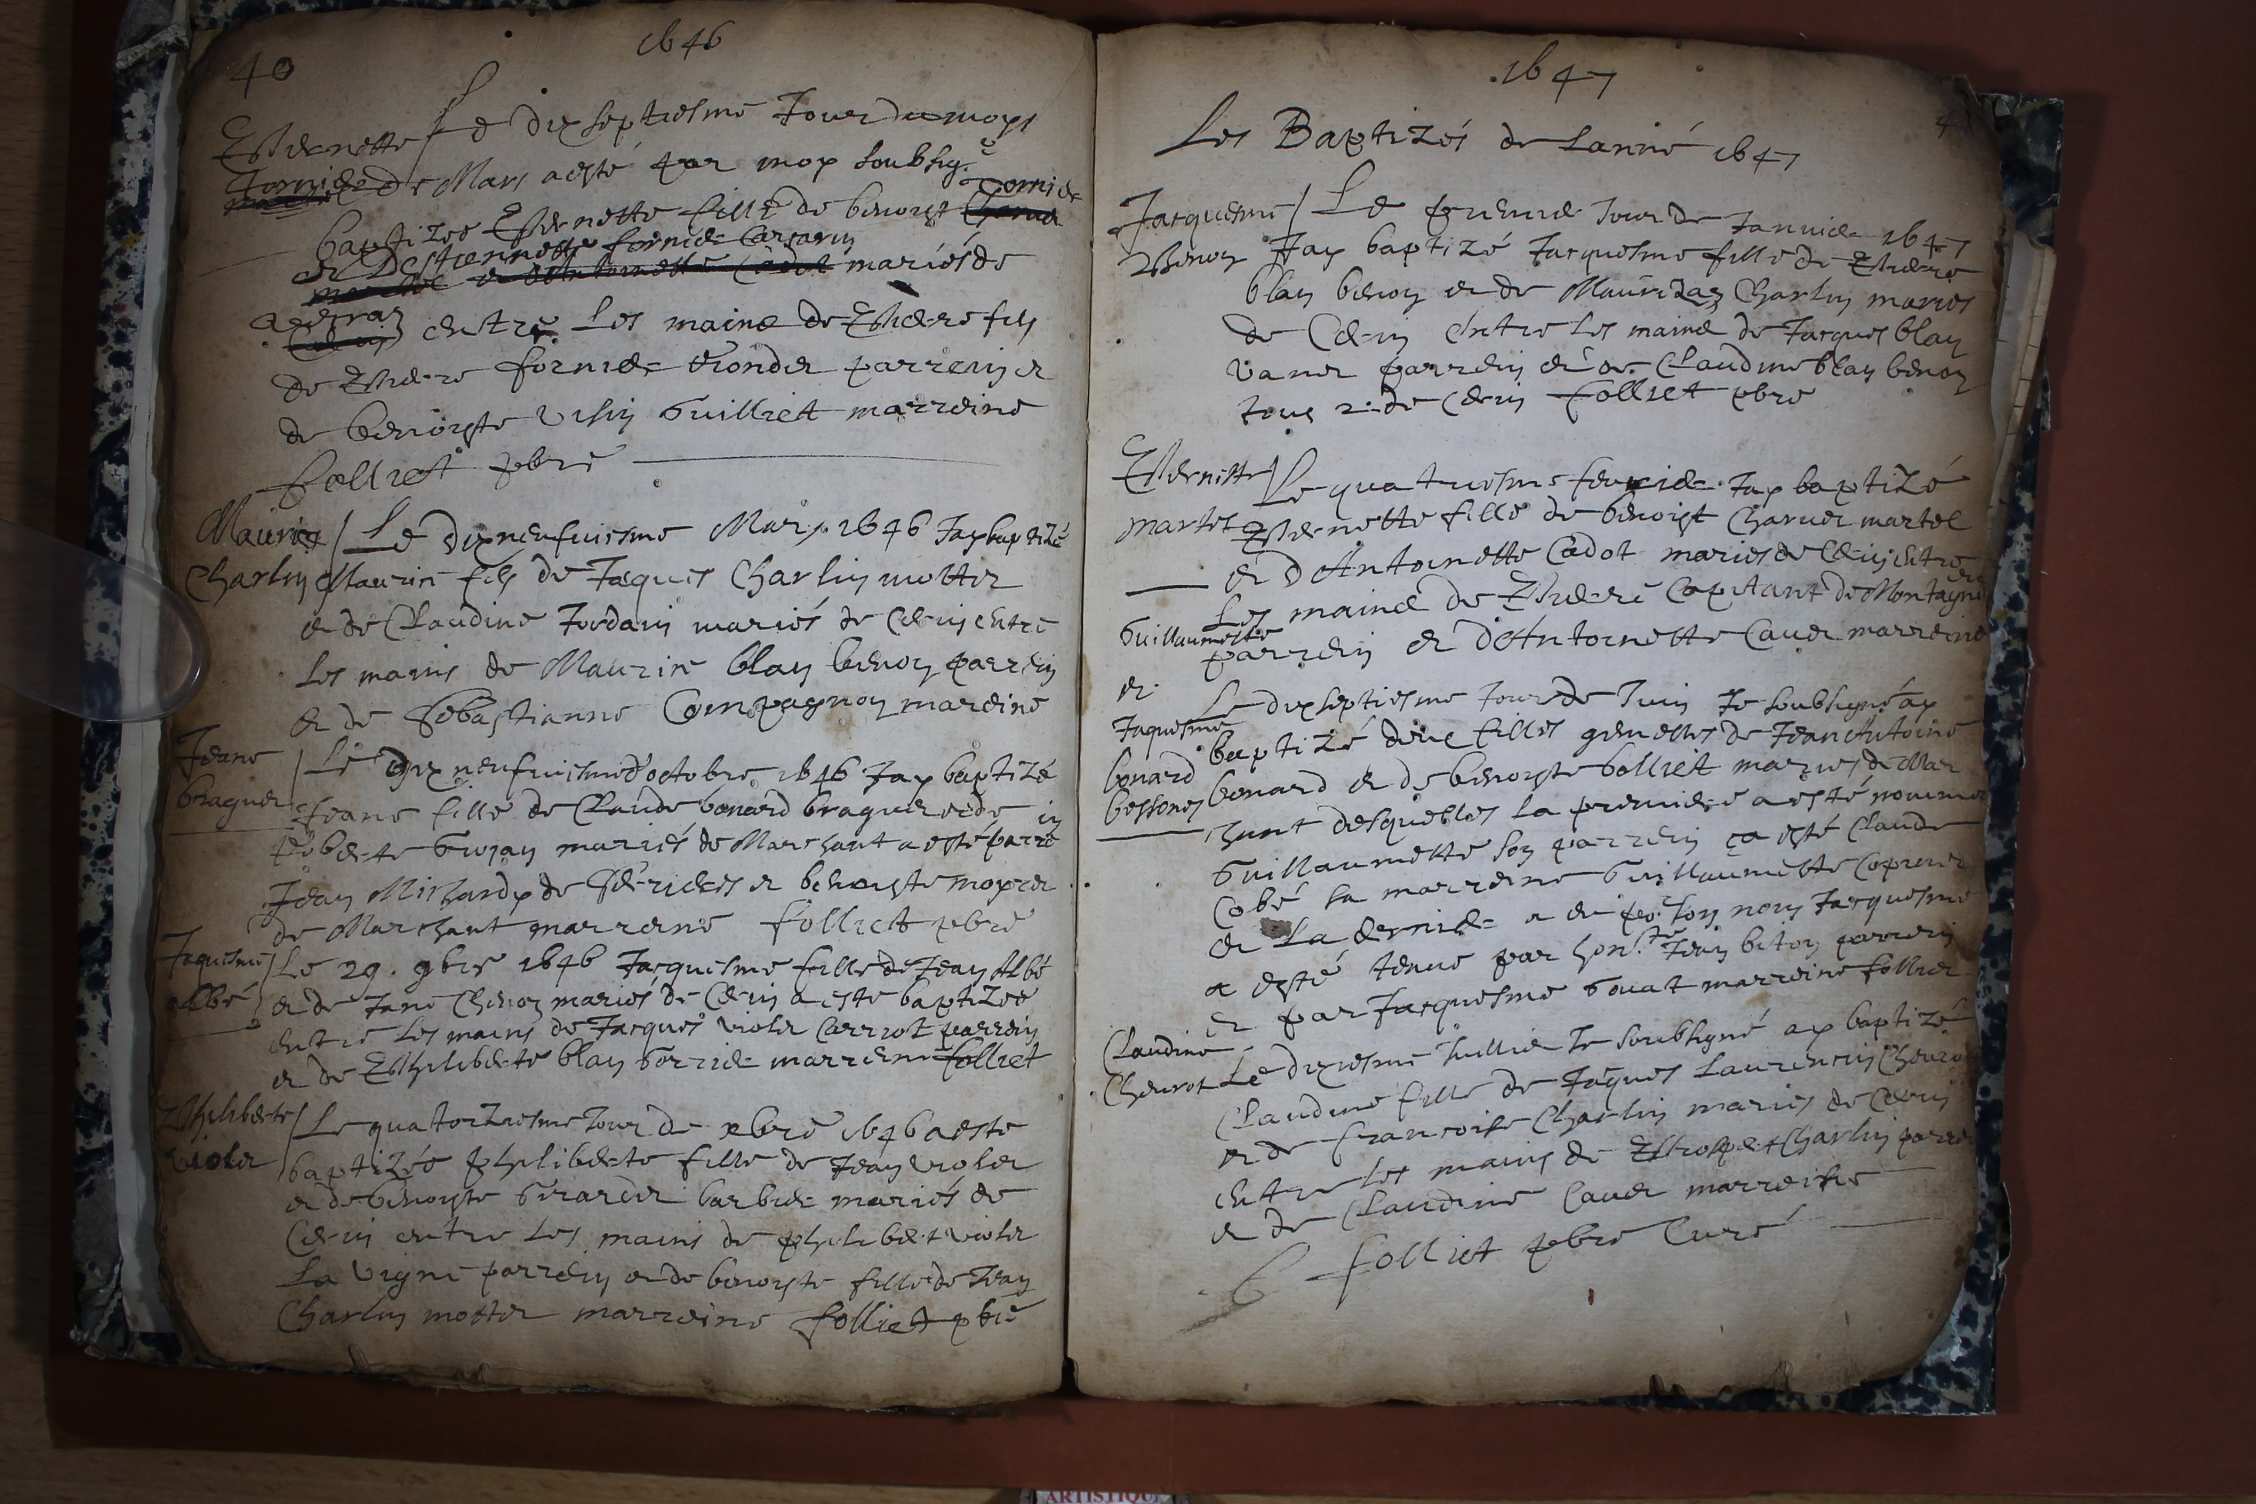 40
1646
Estiennette
Fornier
Le dixseptiesme Jour du moys
de Mars a esté par moy soubsig.é
baptizée Estiennette fille de benoist Fornier
et D'estiennette fornier Carrarin
mariés de
entre les mains de Estiene fils
de Estiene fornier parrein et
de benoiste Guilliet marreine
Folliet pbre
Maurice
Charlin
Le dixneufuiesme Mars 1646 Jay baptizé
Maurice fils de Jaques Charlin mottet
et de Claudine Jordain mariés de Cerin entre
les mains de Maurice blan benoy parrein
et de Sebastianne Compagnon mareine
Jeane
braguer
Le dixneufuiesme d'octobre 1646 Jay baptizé
Jeane fille de Claude bonard braguer et de
Roberte Guyan mariés de Marchant a esté parrein
Jean Michard de et benoiste
de Marchant marrene Folliet pbre
Jaquesme
Albé
Le 29. 9bre 1646 Jacquesme fille de Jean Albé
et de Jane Chenoz mariés de Cerin a este baptizee
entre les mains de Jacques violet Carriot parrein
et de Philiberte blan Gorrier marriene Folliet
Philiberte
violet
Le quatorziesme Jour de xbre 1646 a este
baptizée philiberte fille de Jean violet
et de benoyste Girardet barbier mariés de
Cerin entre les mains de philibert violet
La vigne parrein et de benoyste fille de Jean
Charlin mottet marreine Folliet pbre
1647
41
Les Baptizés de Lanné 1647
Jacquesme
benoy
Le premier Jour de Janvier 1647
Jay baptizé Jacquesme fille de Estiene
blan benoy et de Maurizaz Charlin mariés
de Cerin Entre les mains de Jacques blan
vanet parrein et de Claudine blan benoy
tous 2. de Cerin Folliet pbre
Estiennette
Martel
Le quatriesme feuvrier Jay baptizé
Estiennette fille de benoist Charvet martel
et D'Antoinette Cadot mariés de Cerin entre
Les mains de Estiene Capitant de Montagnieu
parrein et D'Antoinette Cavet marreine
Guillaumette
et
Jaquesme
bonard
bessones
Le dixseptiesme Jour de Juin Je soubsigné ay
baptizé deux filles gemelles de Jean Antoine
bonard et de benoyste bolliet mariés de Mar
chant desquelles la premiere a esté nommée
Guillaumette son parrein ca esté Claude
Cobé sa marreine Guillaumette
et La derniere a eu pour son nom Jacquesme
a esté tenue par hon.ste Jean biton parrein
et par Jacquesme Govat marreine Folliet
Claudine
Chevrot
Le dixiesme Juillet Je soubsigné ay baptizé
Claudine fille de Jaques Laurencin Chevrot
et de Francoise Charlin mariés de Cerin
entre les mains de Charlin parrein
et de Claudine Cavet marreine
Folliet pbre Curé
ARTISTIQUE